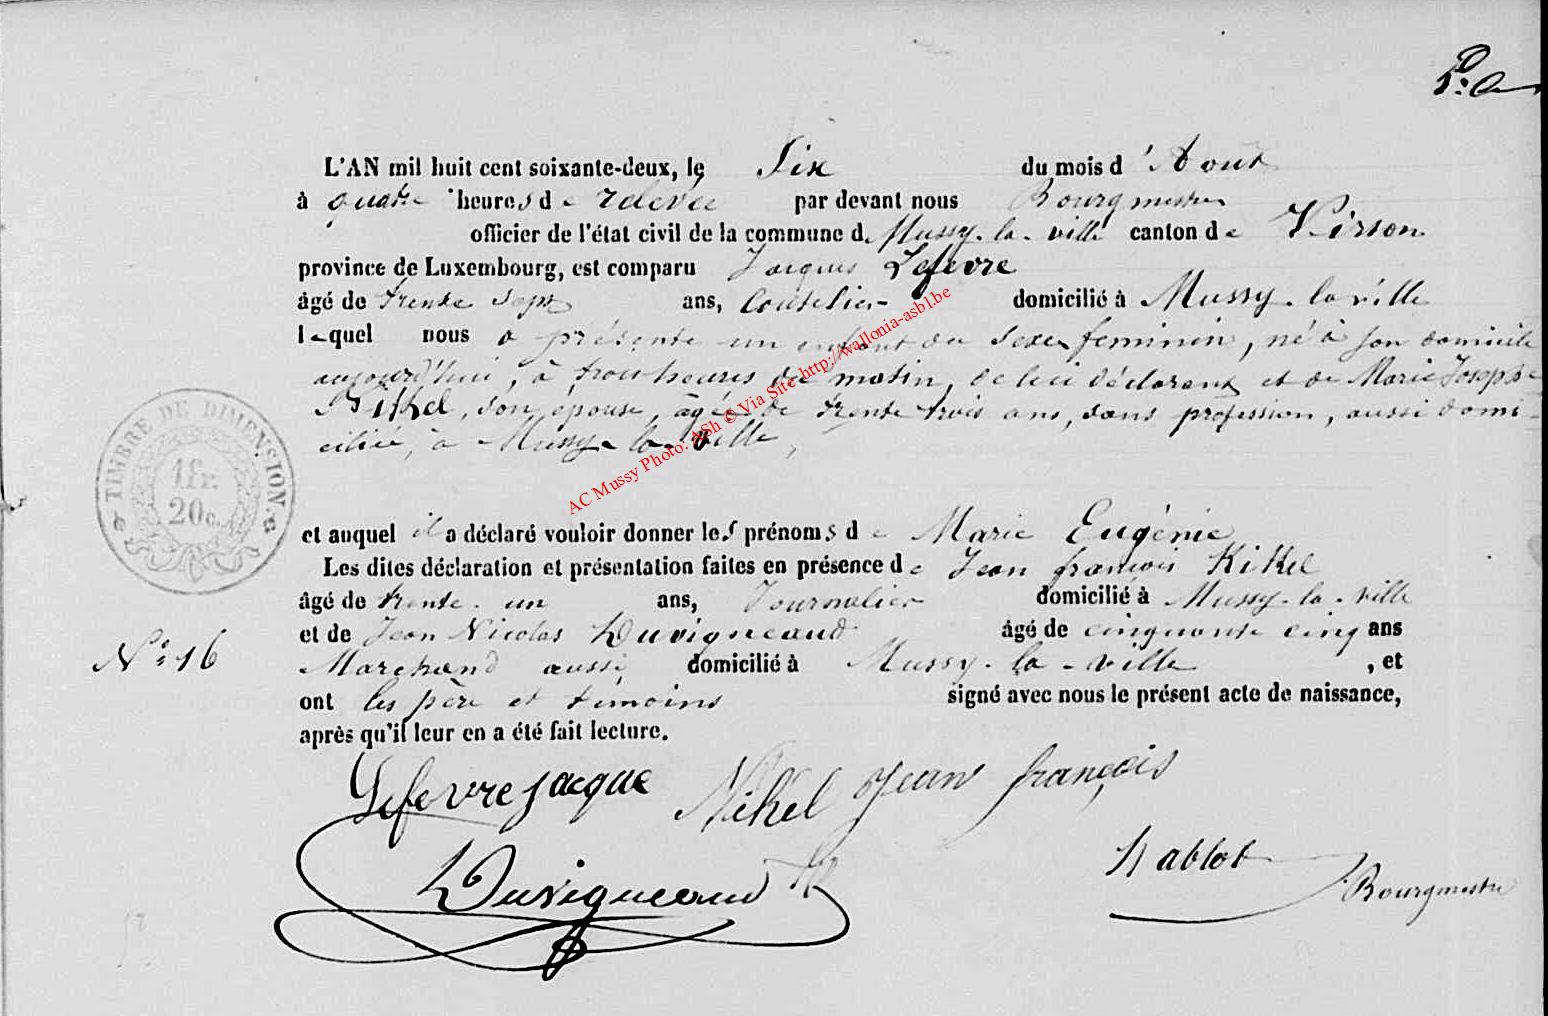 L'AN mil huit cent soixante-deux, le Six du mois d'Aout
à quatre heures de relevée par devant nous Bourgmestre
officier de l'état civil de la commune de Mussy-la-ville canton de Virton
province de Luxembourg, est comparu Jacques Lefevre
âgé de trente sept ans, Coutelier domicilié à Mussy-la ville
lequel nous a présenté un enfant du sexe feminin, né à son domicile
aujourd'hui, à trois heures du matin, de lui déclarant et de Marie Josephe
Nikel, son épouse, âgée de trente trois ans, sans profession, aussi domi-
ciliée, à Mussy-la-ville,
TIMBRE DE DIMENSION.
1fr.
20c.
et auquel il a déclaré vouloir donner les prénoms de Marie Eugénie
Les dites déclaration et présentation faites en présence de Jean françois Nikel
âgé de trente-un ans, Journalier domicilié à Mussy-la-ville
et de Jean Nicolas Duvigneaud âgé de cinquante cinq ans
N° 16
Marchand aussi domicilié à Mussy-la-ville, et
ont les père et temoins signé avec nous le présent acte de naissance,
après qu'il leur en a été fait lecture.
Lefevre jacque Nikel Jean françois
Duvigneaud Hablot
Bourgmestre
AC Mussy Photo: ASh © Via Site http://wallonia-asbl.be